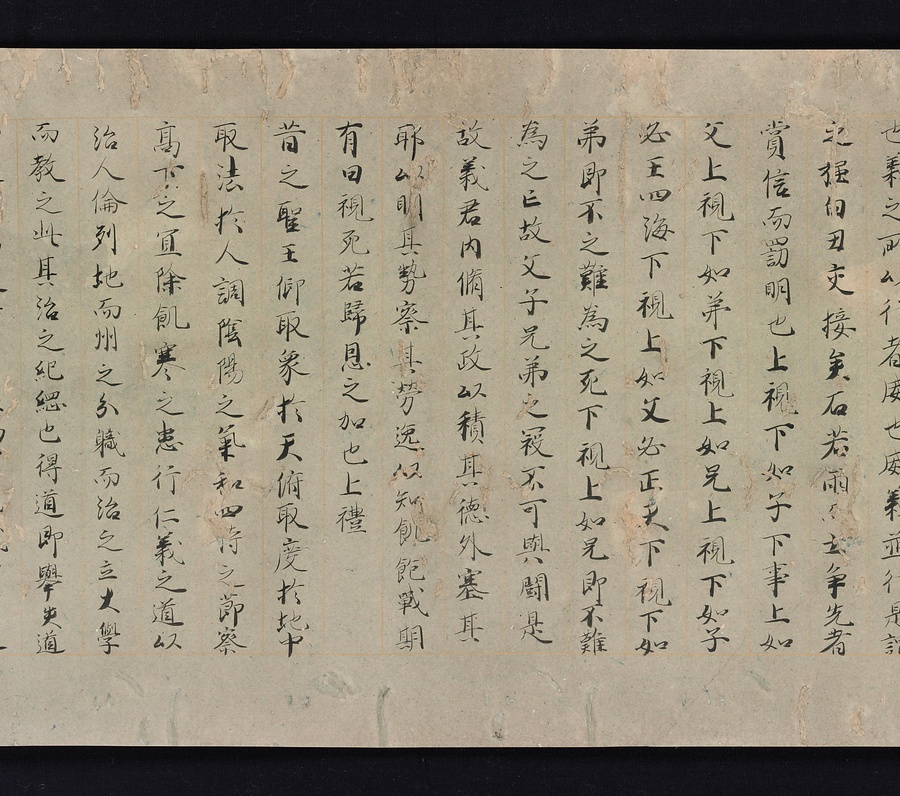 也義之所以行者威也威義並行是謂
之強白丑交接矣石若雨而士争先者
賞信而罰明也上視下如子下事上如
父上視下如弟下視上如兄上視下如子
必王四海下視上如父必正天下視下如
弟即不之難為之死下視上如兄即不難
為之亡故父子兄弟之寇不可與鬪是
故義君内脩其政以積其德外塞其
耶以明其勢察其勞逸以知飢飽戰期
有日視死若歸恩之加也上禮
昔之聖王仰取象於天俯取度於地中
取法於人調陰陽之氣和四時之節察
高下之宜除飢寒之患行仁義之道以
治人倫列地而州之分職而治之立大學
而教之此其治之紀綱也得道即舉失道